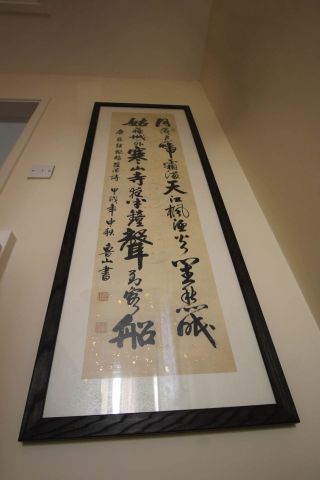 月落烏啼霜滿天江楓漁火對愁眠
姑蘇城外寒山寺夜半鐘聲到客船
唐張繼楓橋夜泊詩 甲戌年中秋 魯山書